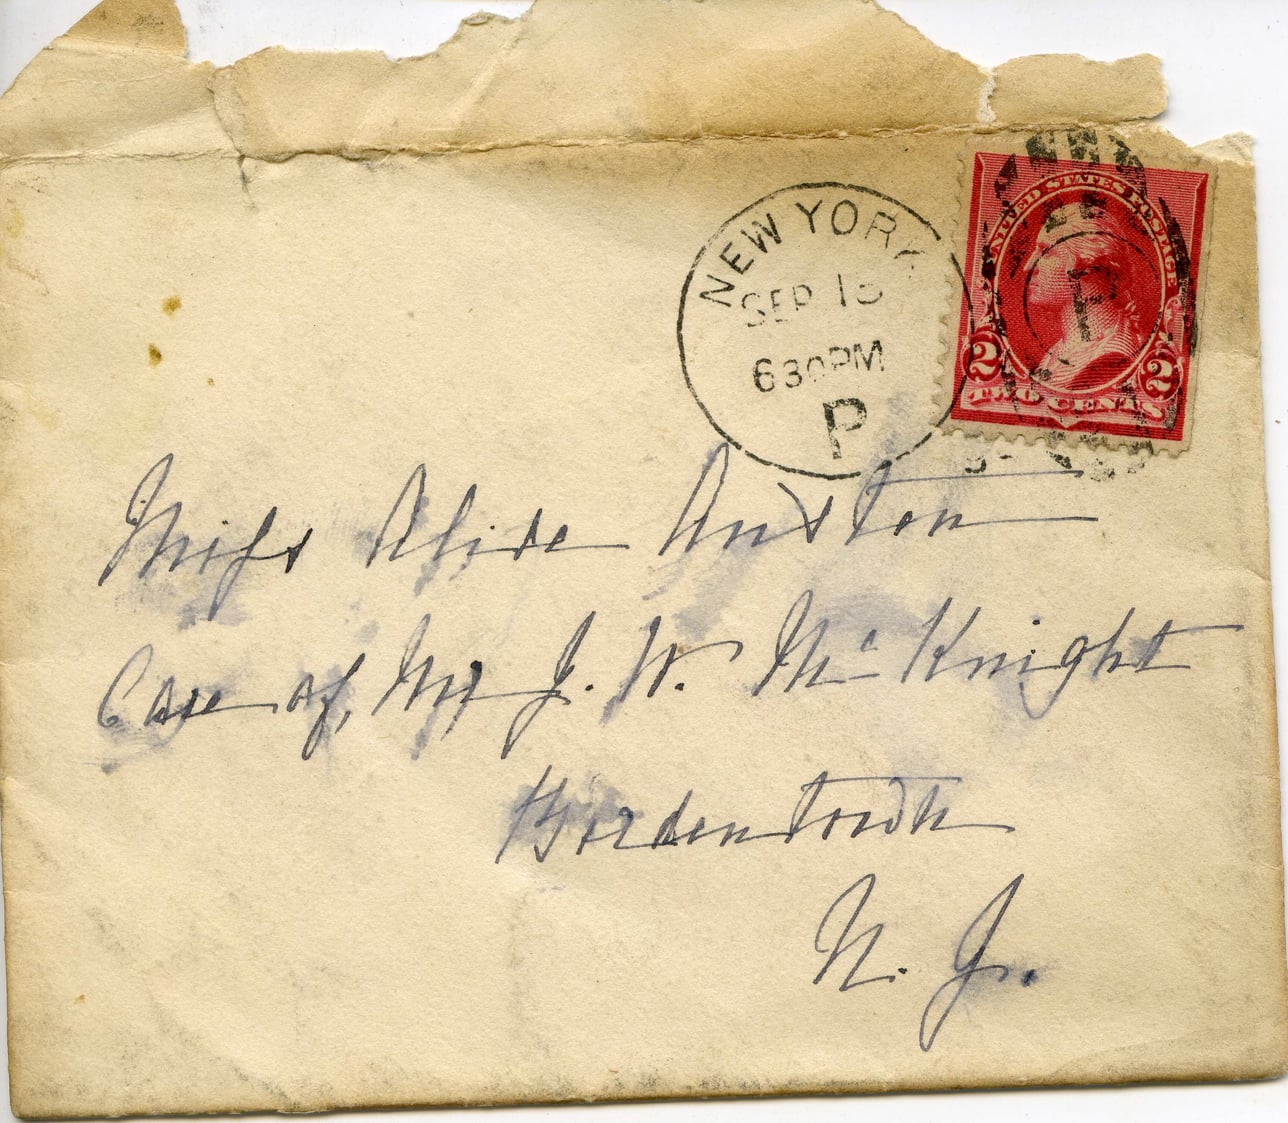 NEW YORK
SEP 15
630PM
P
UNITED STATES POSTAGE
P
2 2
TWO CENTS
Miss Alice Anston
Care of, Mr J. W. Mc Knight
Bordentown
N. J.